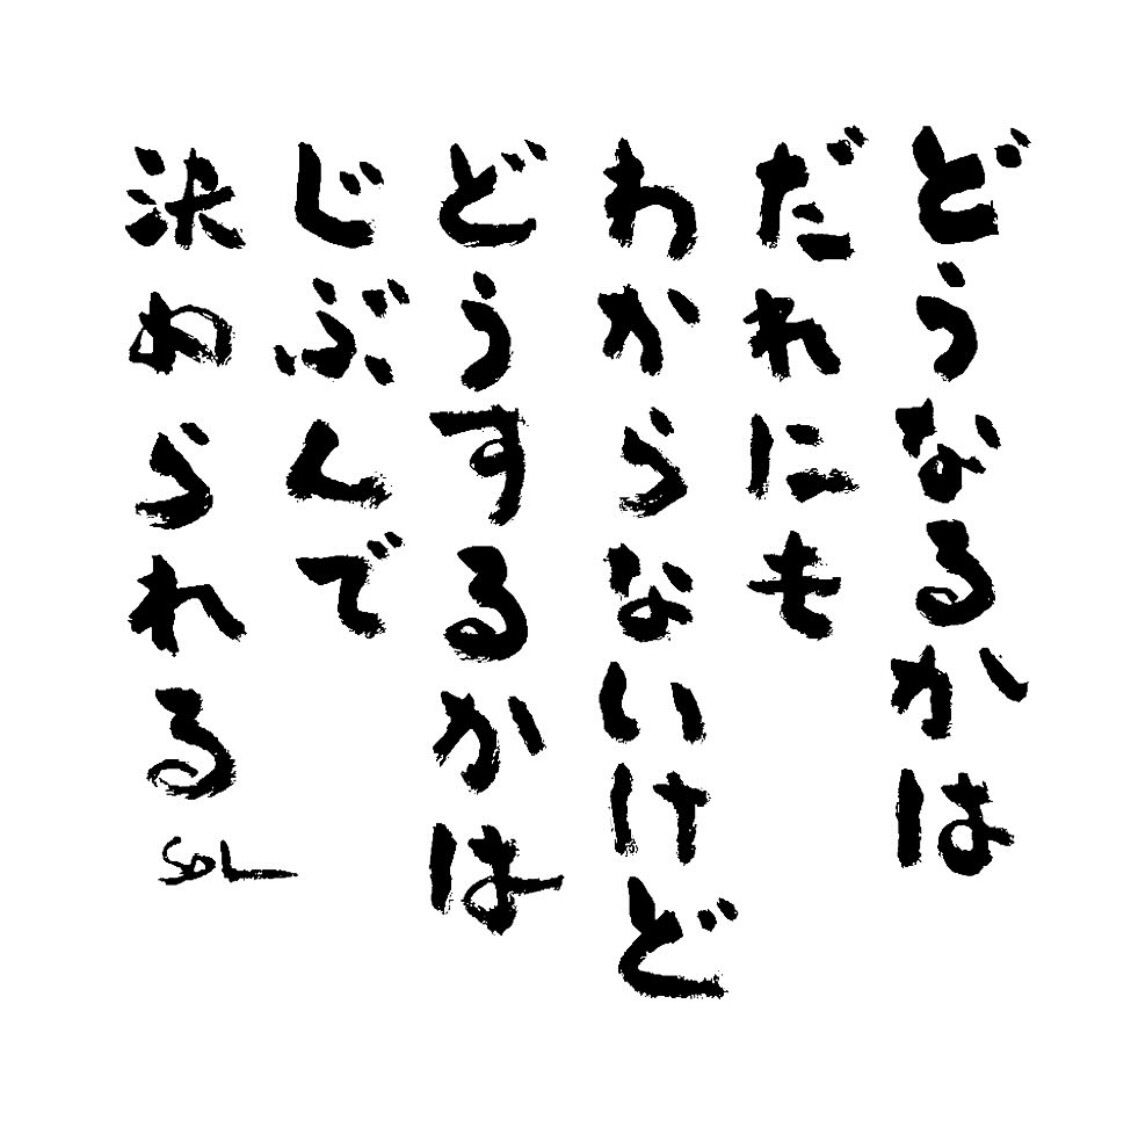 どうなるかは
だれにも
わからないけど
どうするかは
じぶんで
決められる
SOL